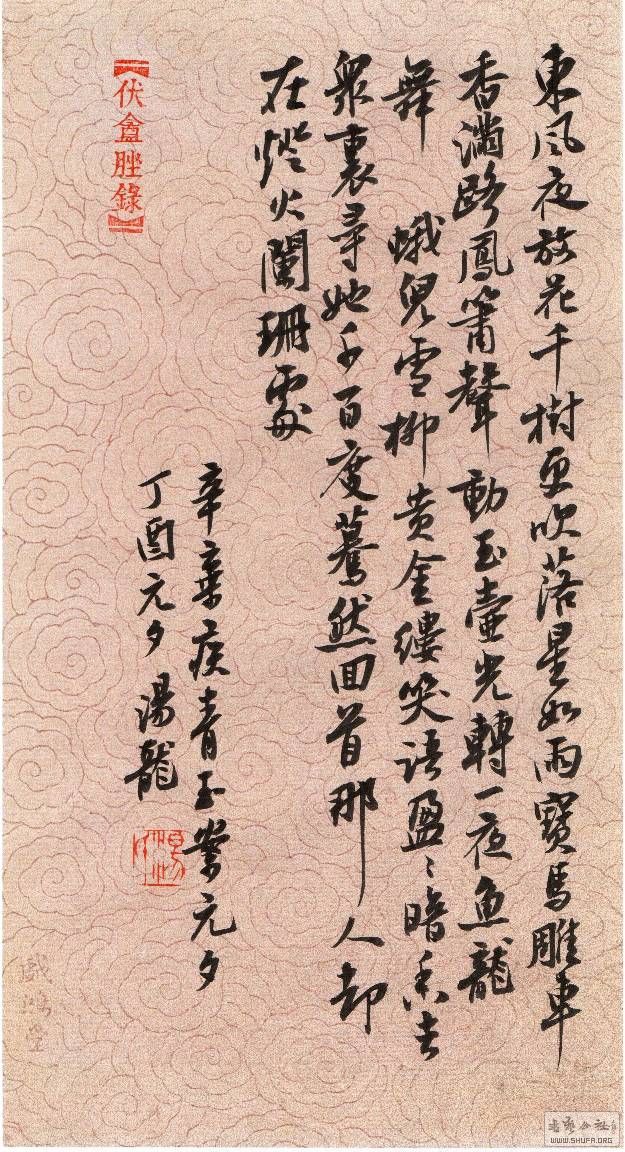 東風夜放花千樹更吹落星如雨寶馬雕車
香滿路鳳簫聲動玉壺光轉一夜魚龍
舞 蛾兒雪柳黄金縷笑語盈〻暗香去
衆裏尋她千百度驀然回首那人却
在燈火闌珊處
辛棄疾青玉案元夕
丁酉元夕湯龍
【伏盦脞錄】
戲鴻堂
WWW.SHUFA.ORG